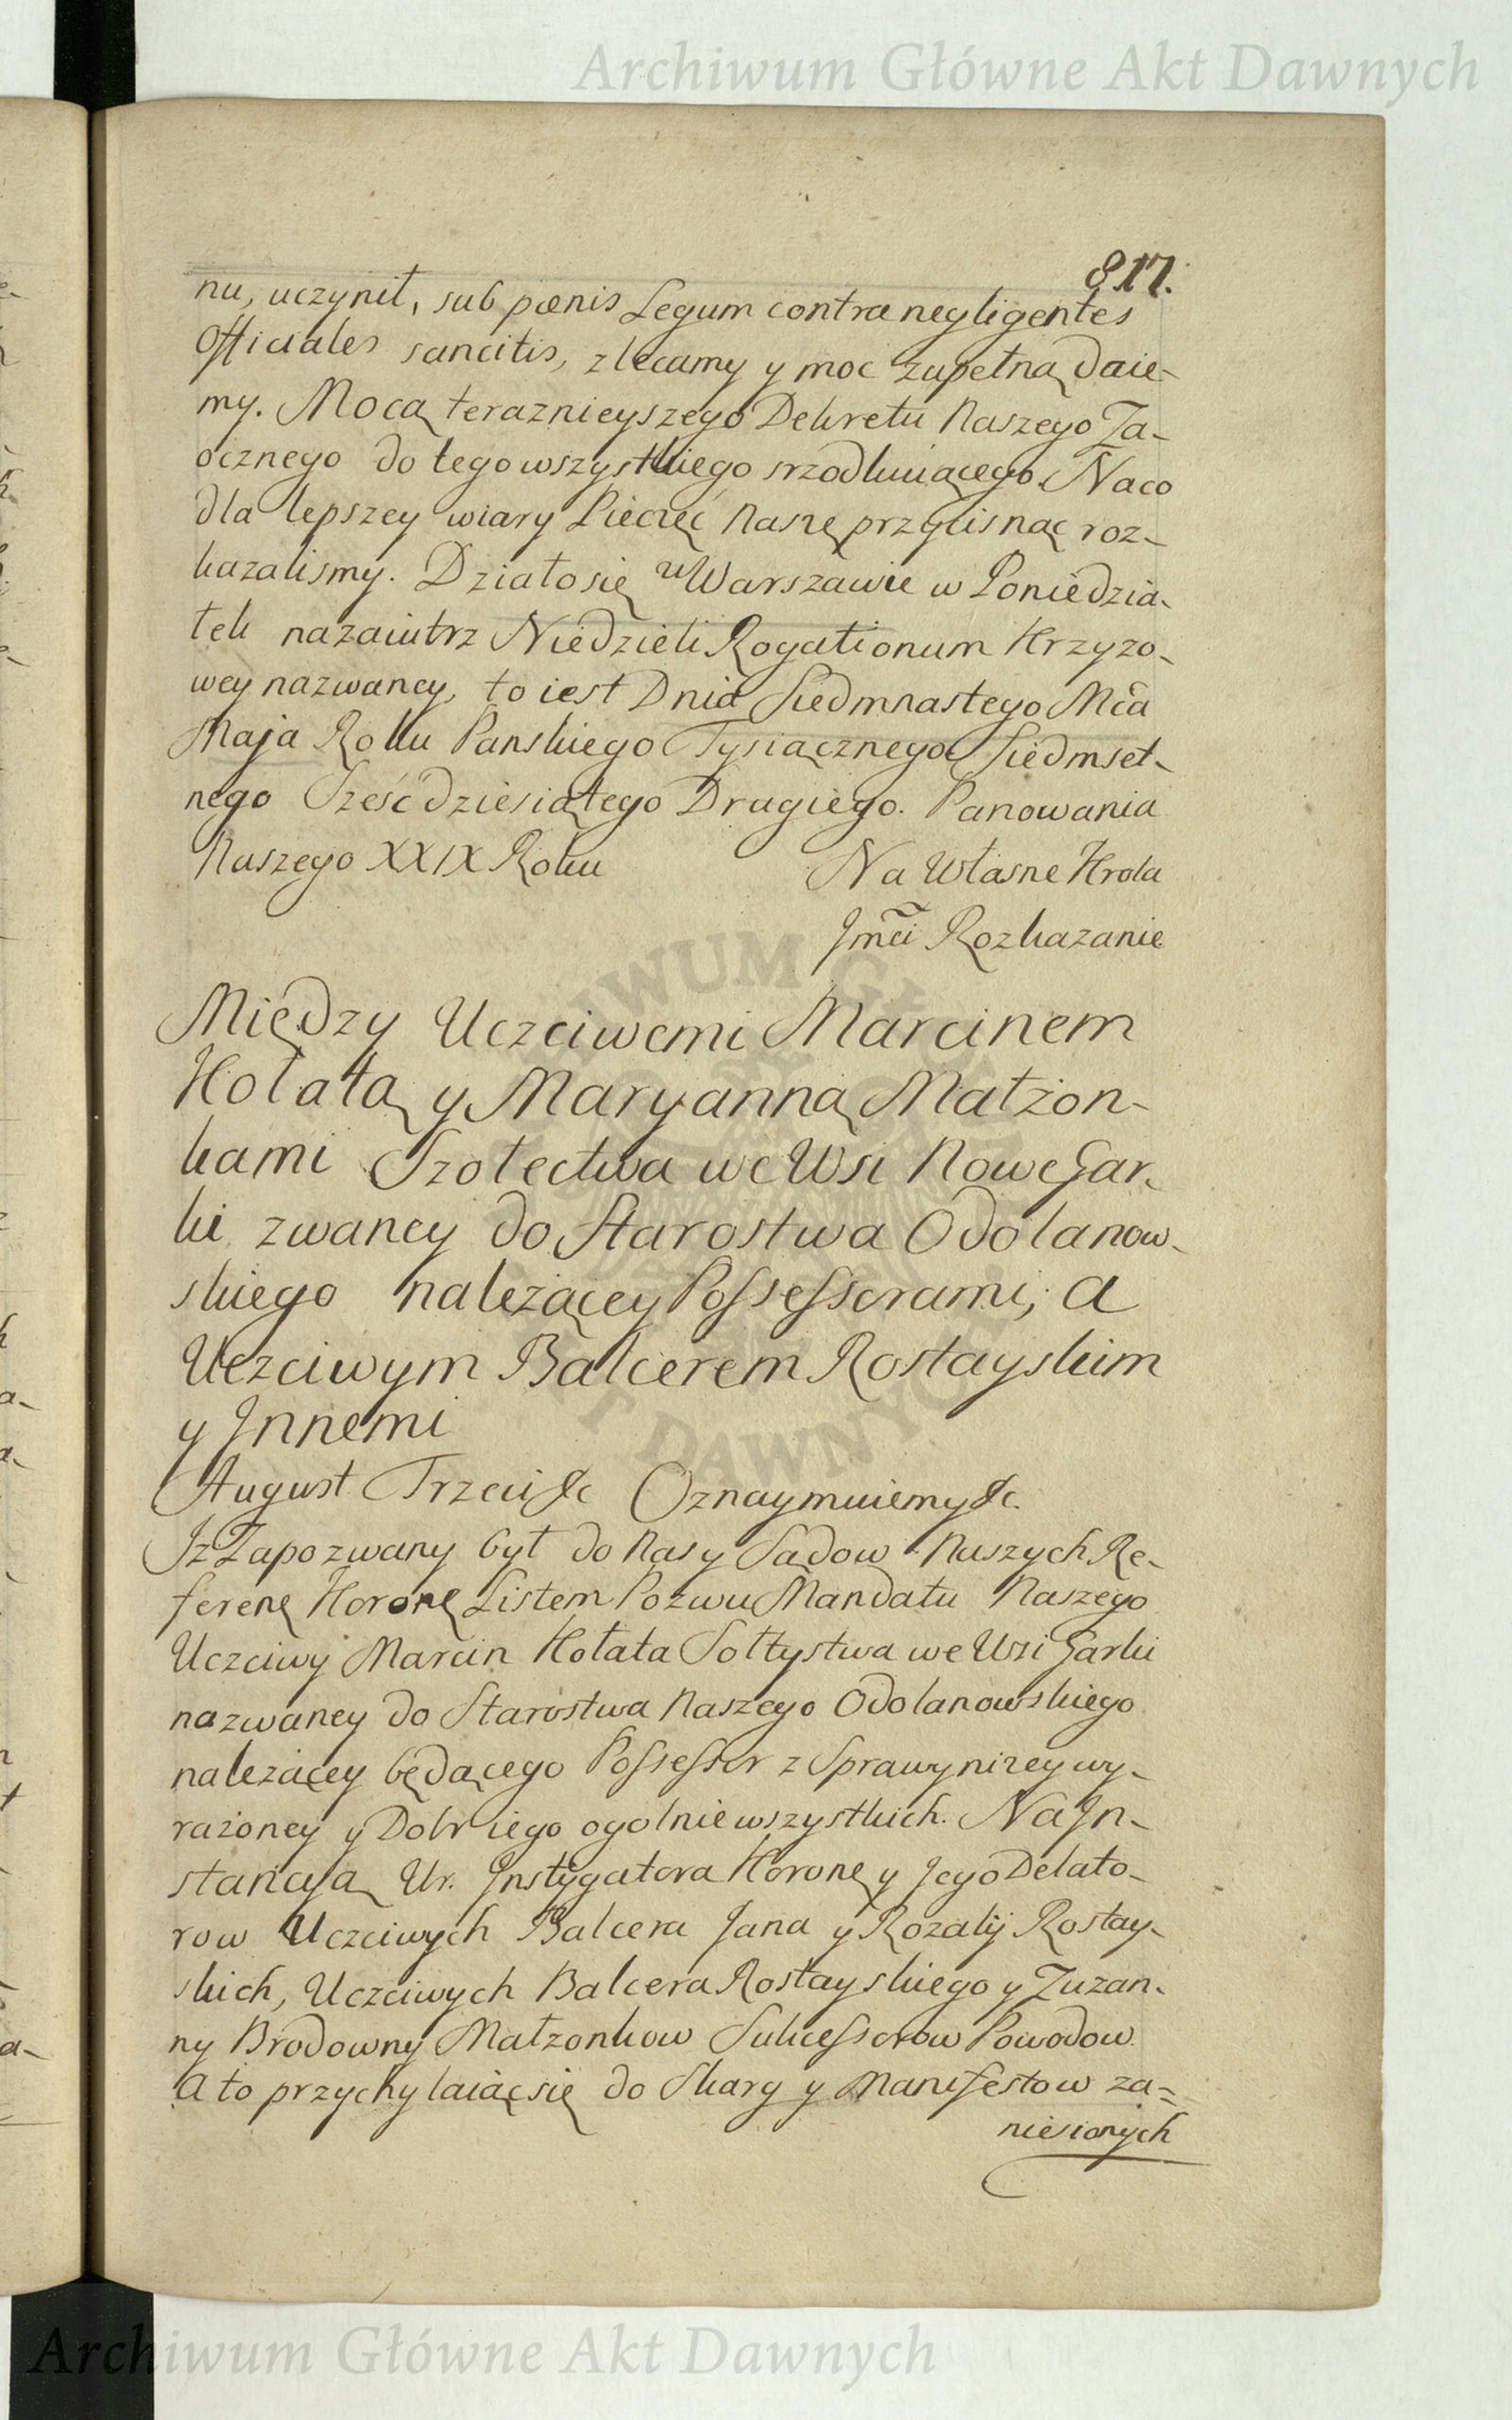 Archiwum Główne Akt Dawnych
817.
nu, uczynił, sub pœnis Legum contra negligentes
Officiales sancitis, zlecamy y moc zupełną daie-
my. Mocą teraznieyszego Dekretu Naszego Za-
ocznego do tego wszystkiego srzodkuiącego. Na co
dla lepszey wiary Pieczęć Naszę przycisnąc roz-
kazalismy. Działo się w Warszawie w Poniedzia-
łek nazaiutrz Niedzieli Rogationum Krzyzo-
wey nazwaney, to iest Dnia Siedmnastego Mca
Maja Roku Panskiego Tysiącznego Siedmset-
nego Sześćdziesiątego Drugiego. Panowania
Naszego XXIX Roku
Na Własne Krola
Jmci Rozkazanie
Między Uczciwemi Marcinem
Kołatą y Maryanną Małżon-
kami Szołectwa we Wsi Nowe Gar-
ki zwaney do Starostwa Odolanow-
skiego należącey Possessorami; a
Uczciwym Balcerem Rostayskim
y Innemi
August Trzeci &c Oznaymuiemy &c.
Iż Zapozwany był do Nas y Sądow Naszych Re-
ferenę Koronę Listem Pozwu Mandatu Naszego
Uczciwy Marcin Kołata Sołtystwa we Wsi Garki
nazwaney do Starostwa Naszego Odolanowskiego
należącey będącego Possessor z Sprawy niżey wy-
rażoney y Dobr iego ogolnie wszystkich. Na In-
stancyą Ur. Instygatora Koronę y Jego Delato-
row Uczciwych Balcera Jana y Rozalij Rostay-
skich, Uczciwych Balcera Rostayskiego y Zuzan-
ny Brodowny Małzonkow Sukcessorow Powodow.
A to przychylaiąc się do Skarg y Manifestow za=
niesionych
Archiwum Główne Akt Dawnych